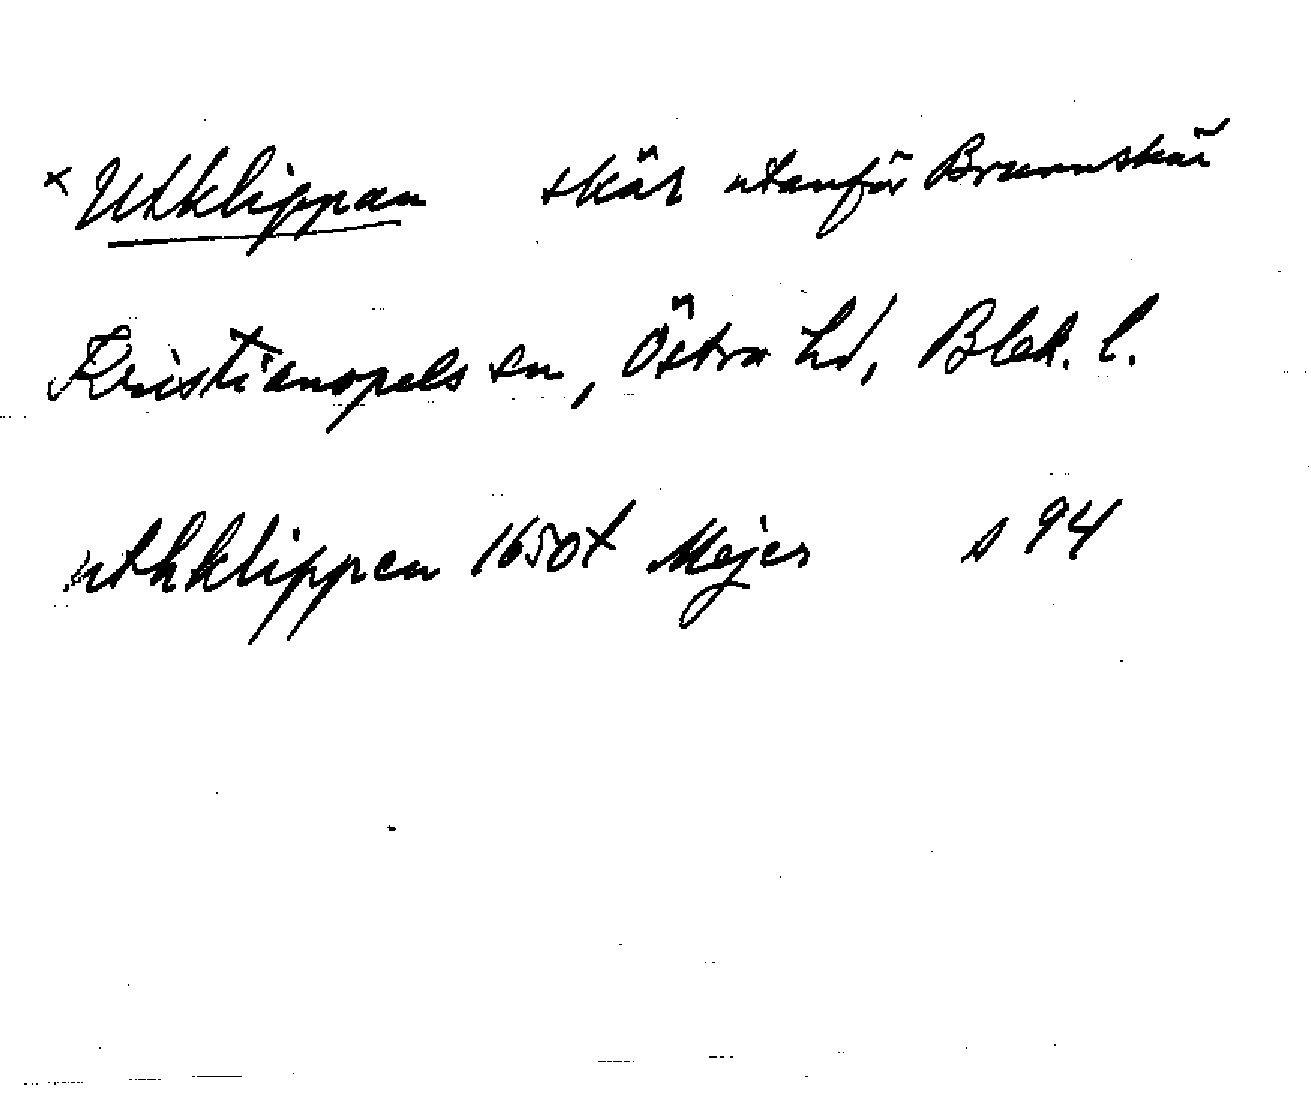 × Utklippan skär utanför Brunnskär
Kristianopels sn, Östra hd, Blek. l.
uthklippen 1650t Mejer s 94